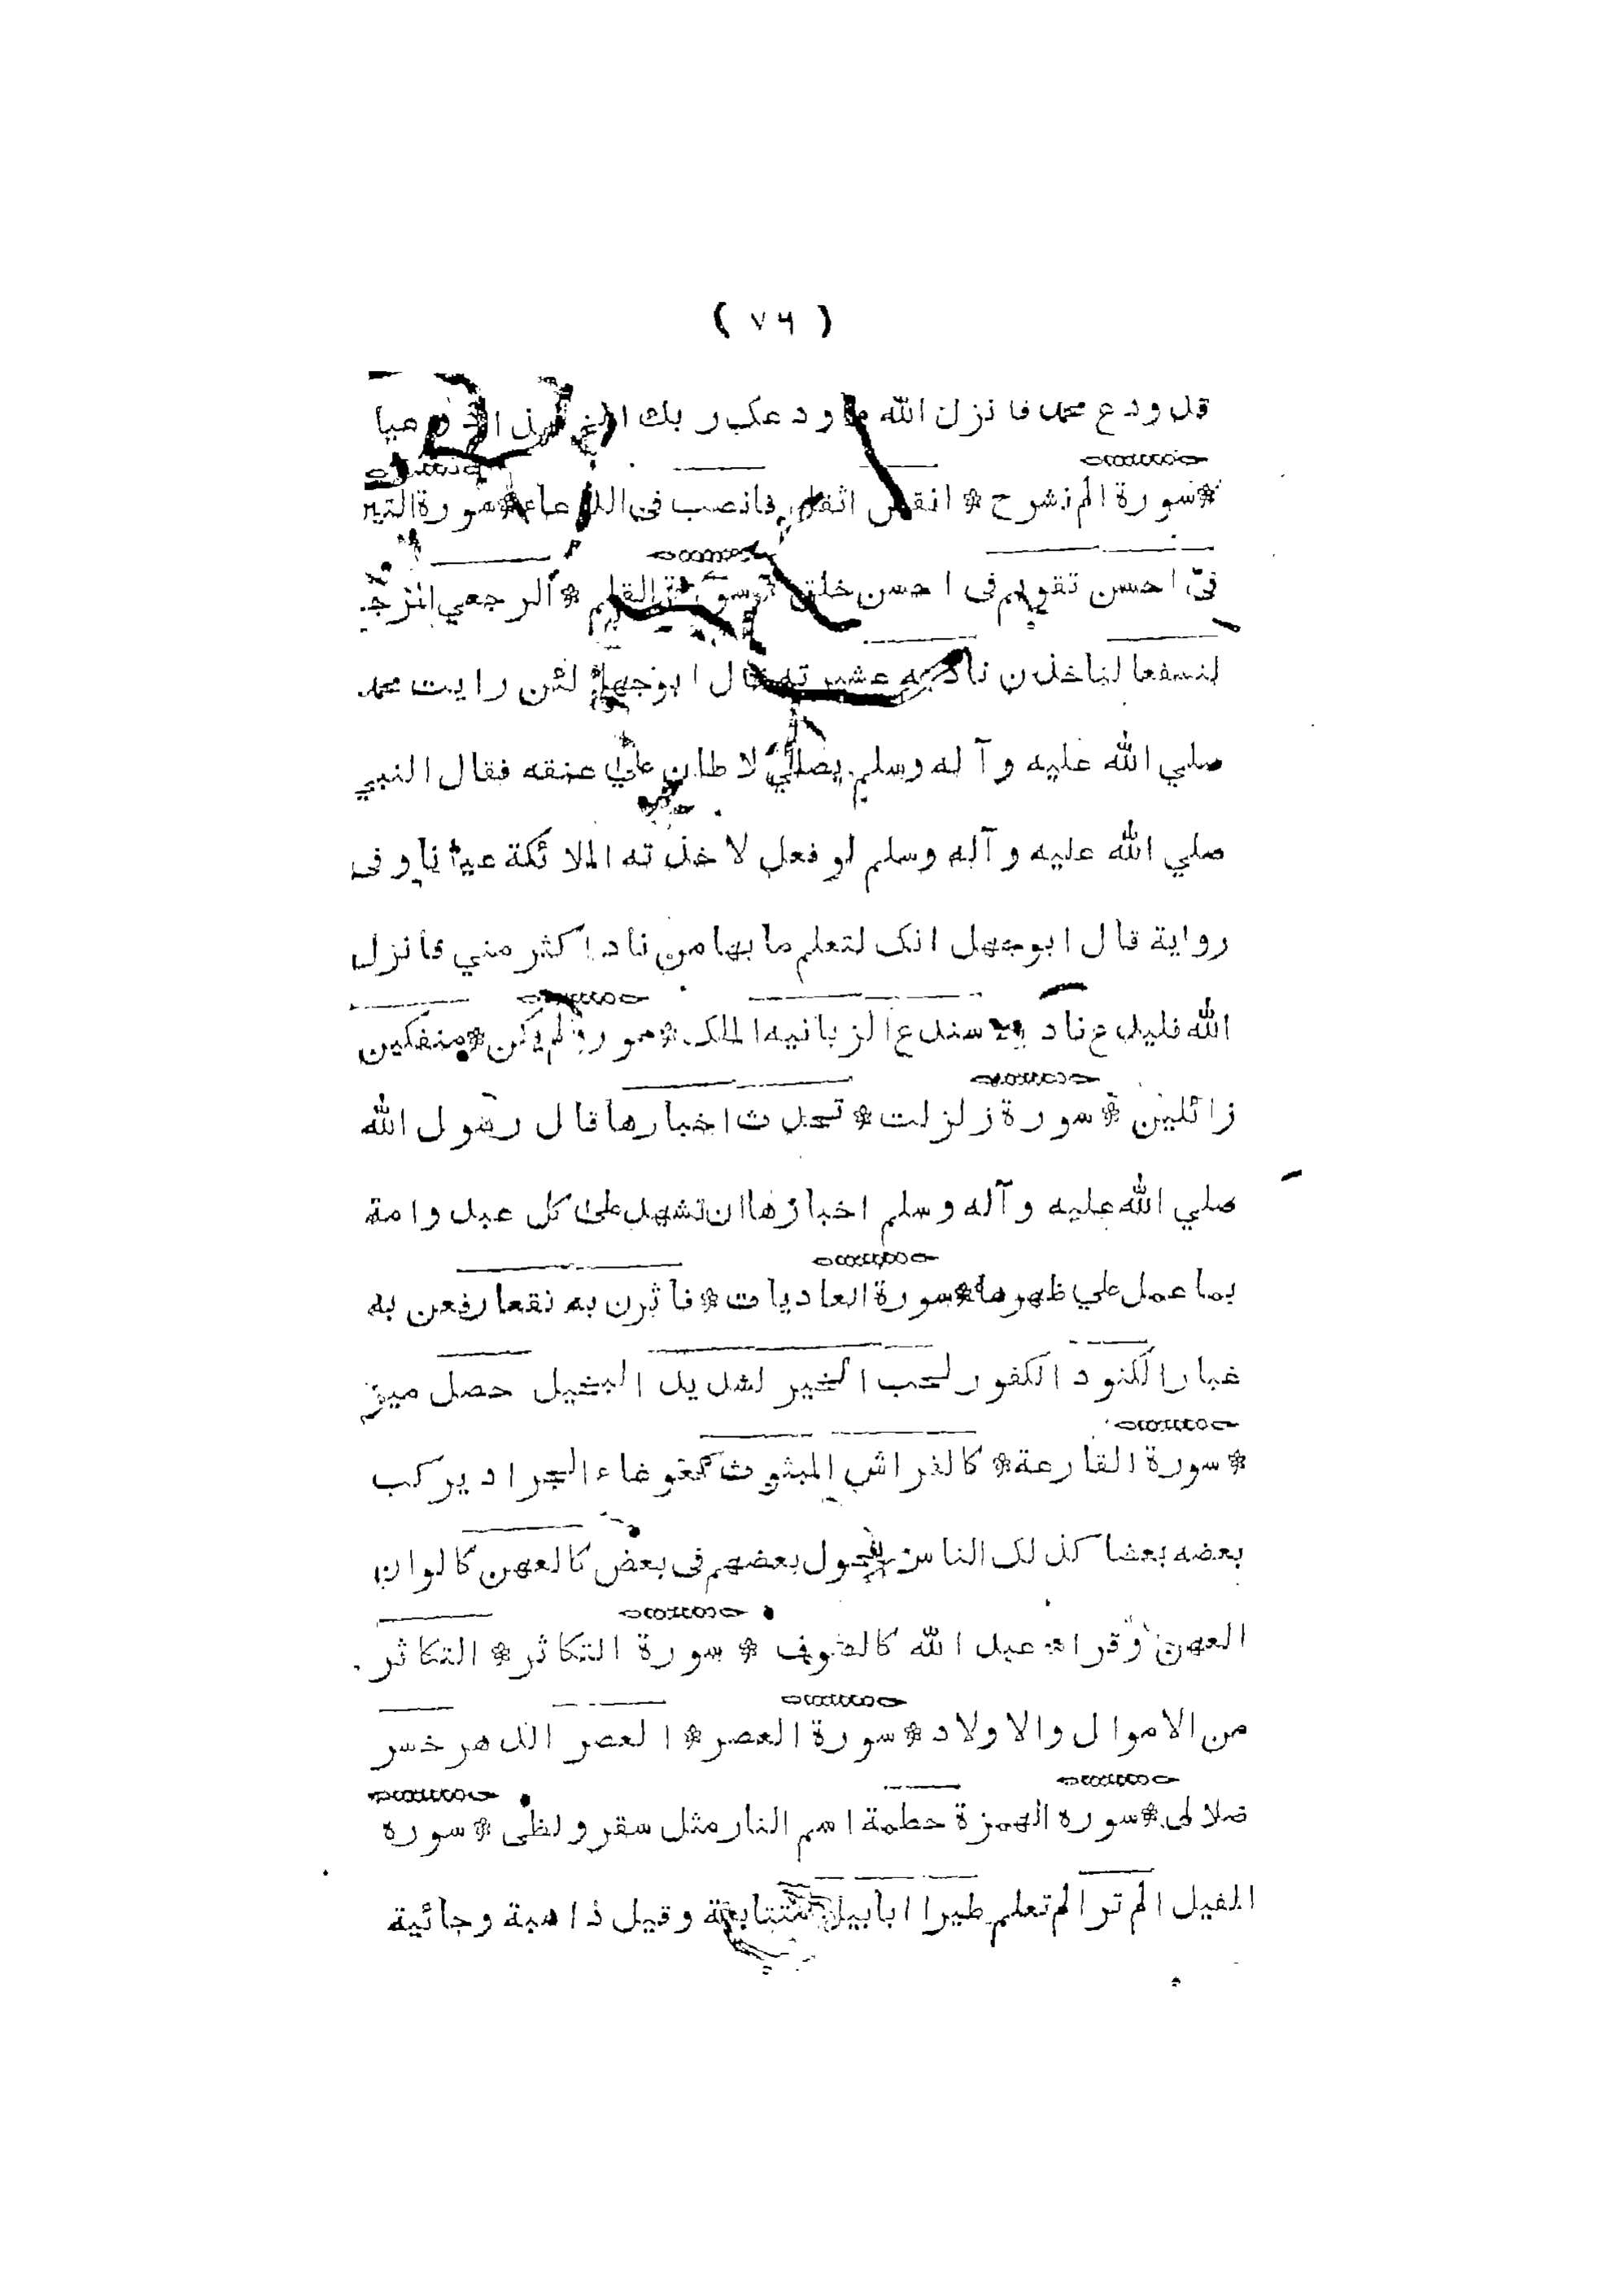 ( ٧٦ )
قد ودع محمد فانزل الله ما ودعك ربك
* سورة الم نشرح * انقض اثقل فانصب فى الدعاء * سورة التين
فى احسن تقويم فى احسن خلق * سورة القلم * الرجعي
لنسفعا لناخذن ناديه عشيرته قال ابوجهل لئن رايت محمد
صلي الله عليه وآله وسلم يصلي لاطان علي عنقه فقال النبي
صلي الله عليه وآله وسلم لو فعل لاخذته الملائكة عيانا وفى
رواية قال ابوجهل انك لتعلم ما بها من ناد اكثر مني فانزل
الله فليدع ناديه سندع الزبانيه الملك * سورة لم يكن * منفكين
زائلين * سورة زلزلت * تحدث اخبارها قال رسول الله
صلي الله عليه وآله وسلم اخبارها ان تشهد على كل عبد وامة
بما عمل علي ظهرها * سورة العاديات * فاثرن به نقعا رفعن به
غبارا لكنود الكفور لحب الخير لشديد البخيل حصل ميز
* سورة القارعة * كالفراش المبثوث كغوغاء الجراد يركب
بعضه بعضا كذلك الناس يجول بعضهم فى بعض كالعهن كالوان
العهن وقراء عبد الله كالصوف * سورة التكاثر * التكاثر
من الاموال والاولاد * سورة العصر * العصر الدهر خسر
ضلال * سوره الهمزة حطمة اسم النار مثل سقر ولظى * سوره
الفيل الم تر الم تعلم طيرا ابابيل متتابعة وقيل ذاهبة وجائية